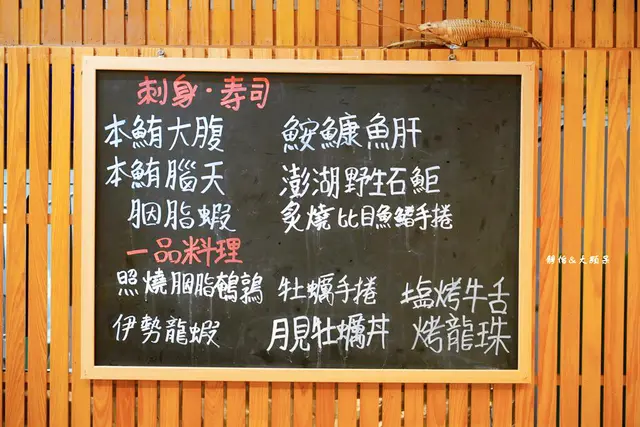 刺身·寿司
本鮪大腹 鮟鱇魚肝
本鮪腦天 澎湖野生石鮔
胭脂蝦 炙燒比目魚鰭手捲
一品料理
照燒胭脂鵪鶉 牡蠣手捲 塩烤牛舌
伊勢龍蝦 月見牡蠣丼 烤龍珠